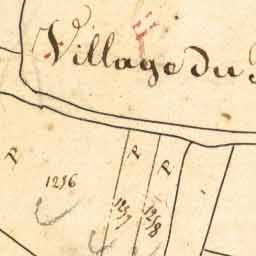 Village du
P
P
P
1256
1257
1258